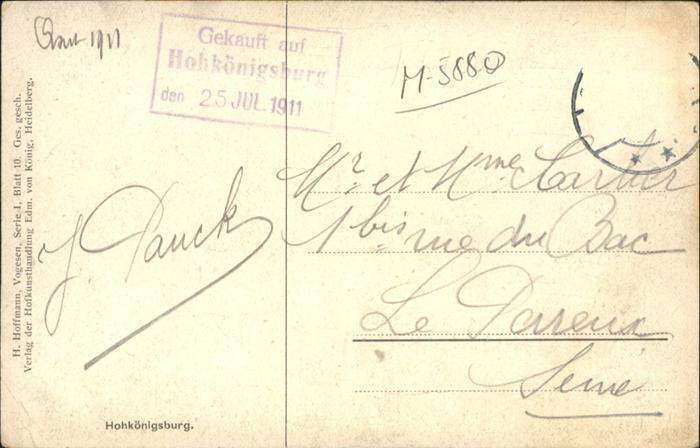 Août 1911
Gekauft auf
Hohkönigsburg
den 25 JUL. 1911
M-5880
H. Hoffmann, Vogesen, Serie I, Blatt 10. Ges. gesch.
Verlag der Hofkunsthandlung Edm. von König, Heidelberg.
Mr et Mme Cartier
1 bis rue du Bac
Le Perreux
Seine
J Pauck
Hohkönigsburg.